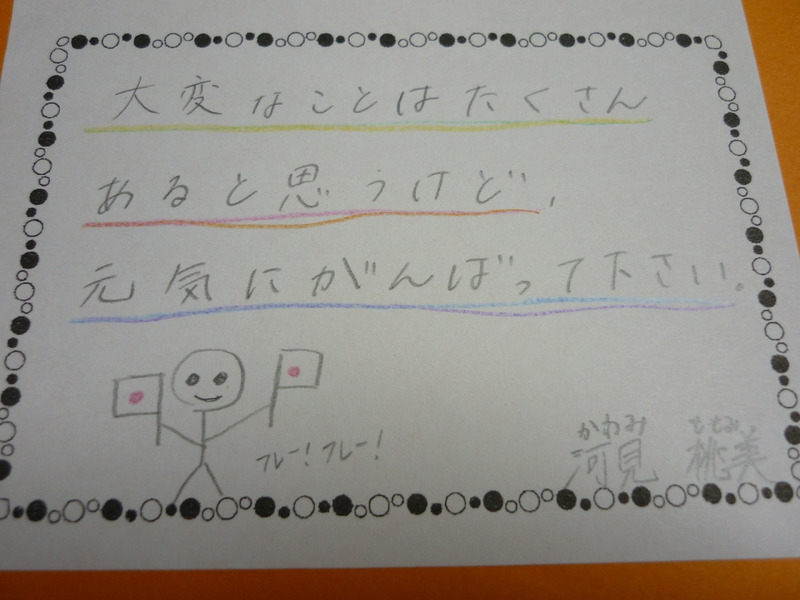 大変なことはたくさん
あると思うけど、
元気にがんばって下さい。
フレー!フレー!
かわみ ももみ
河見 桃美